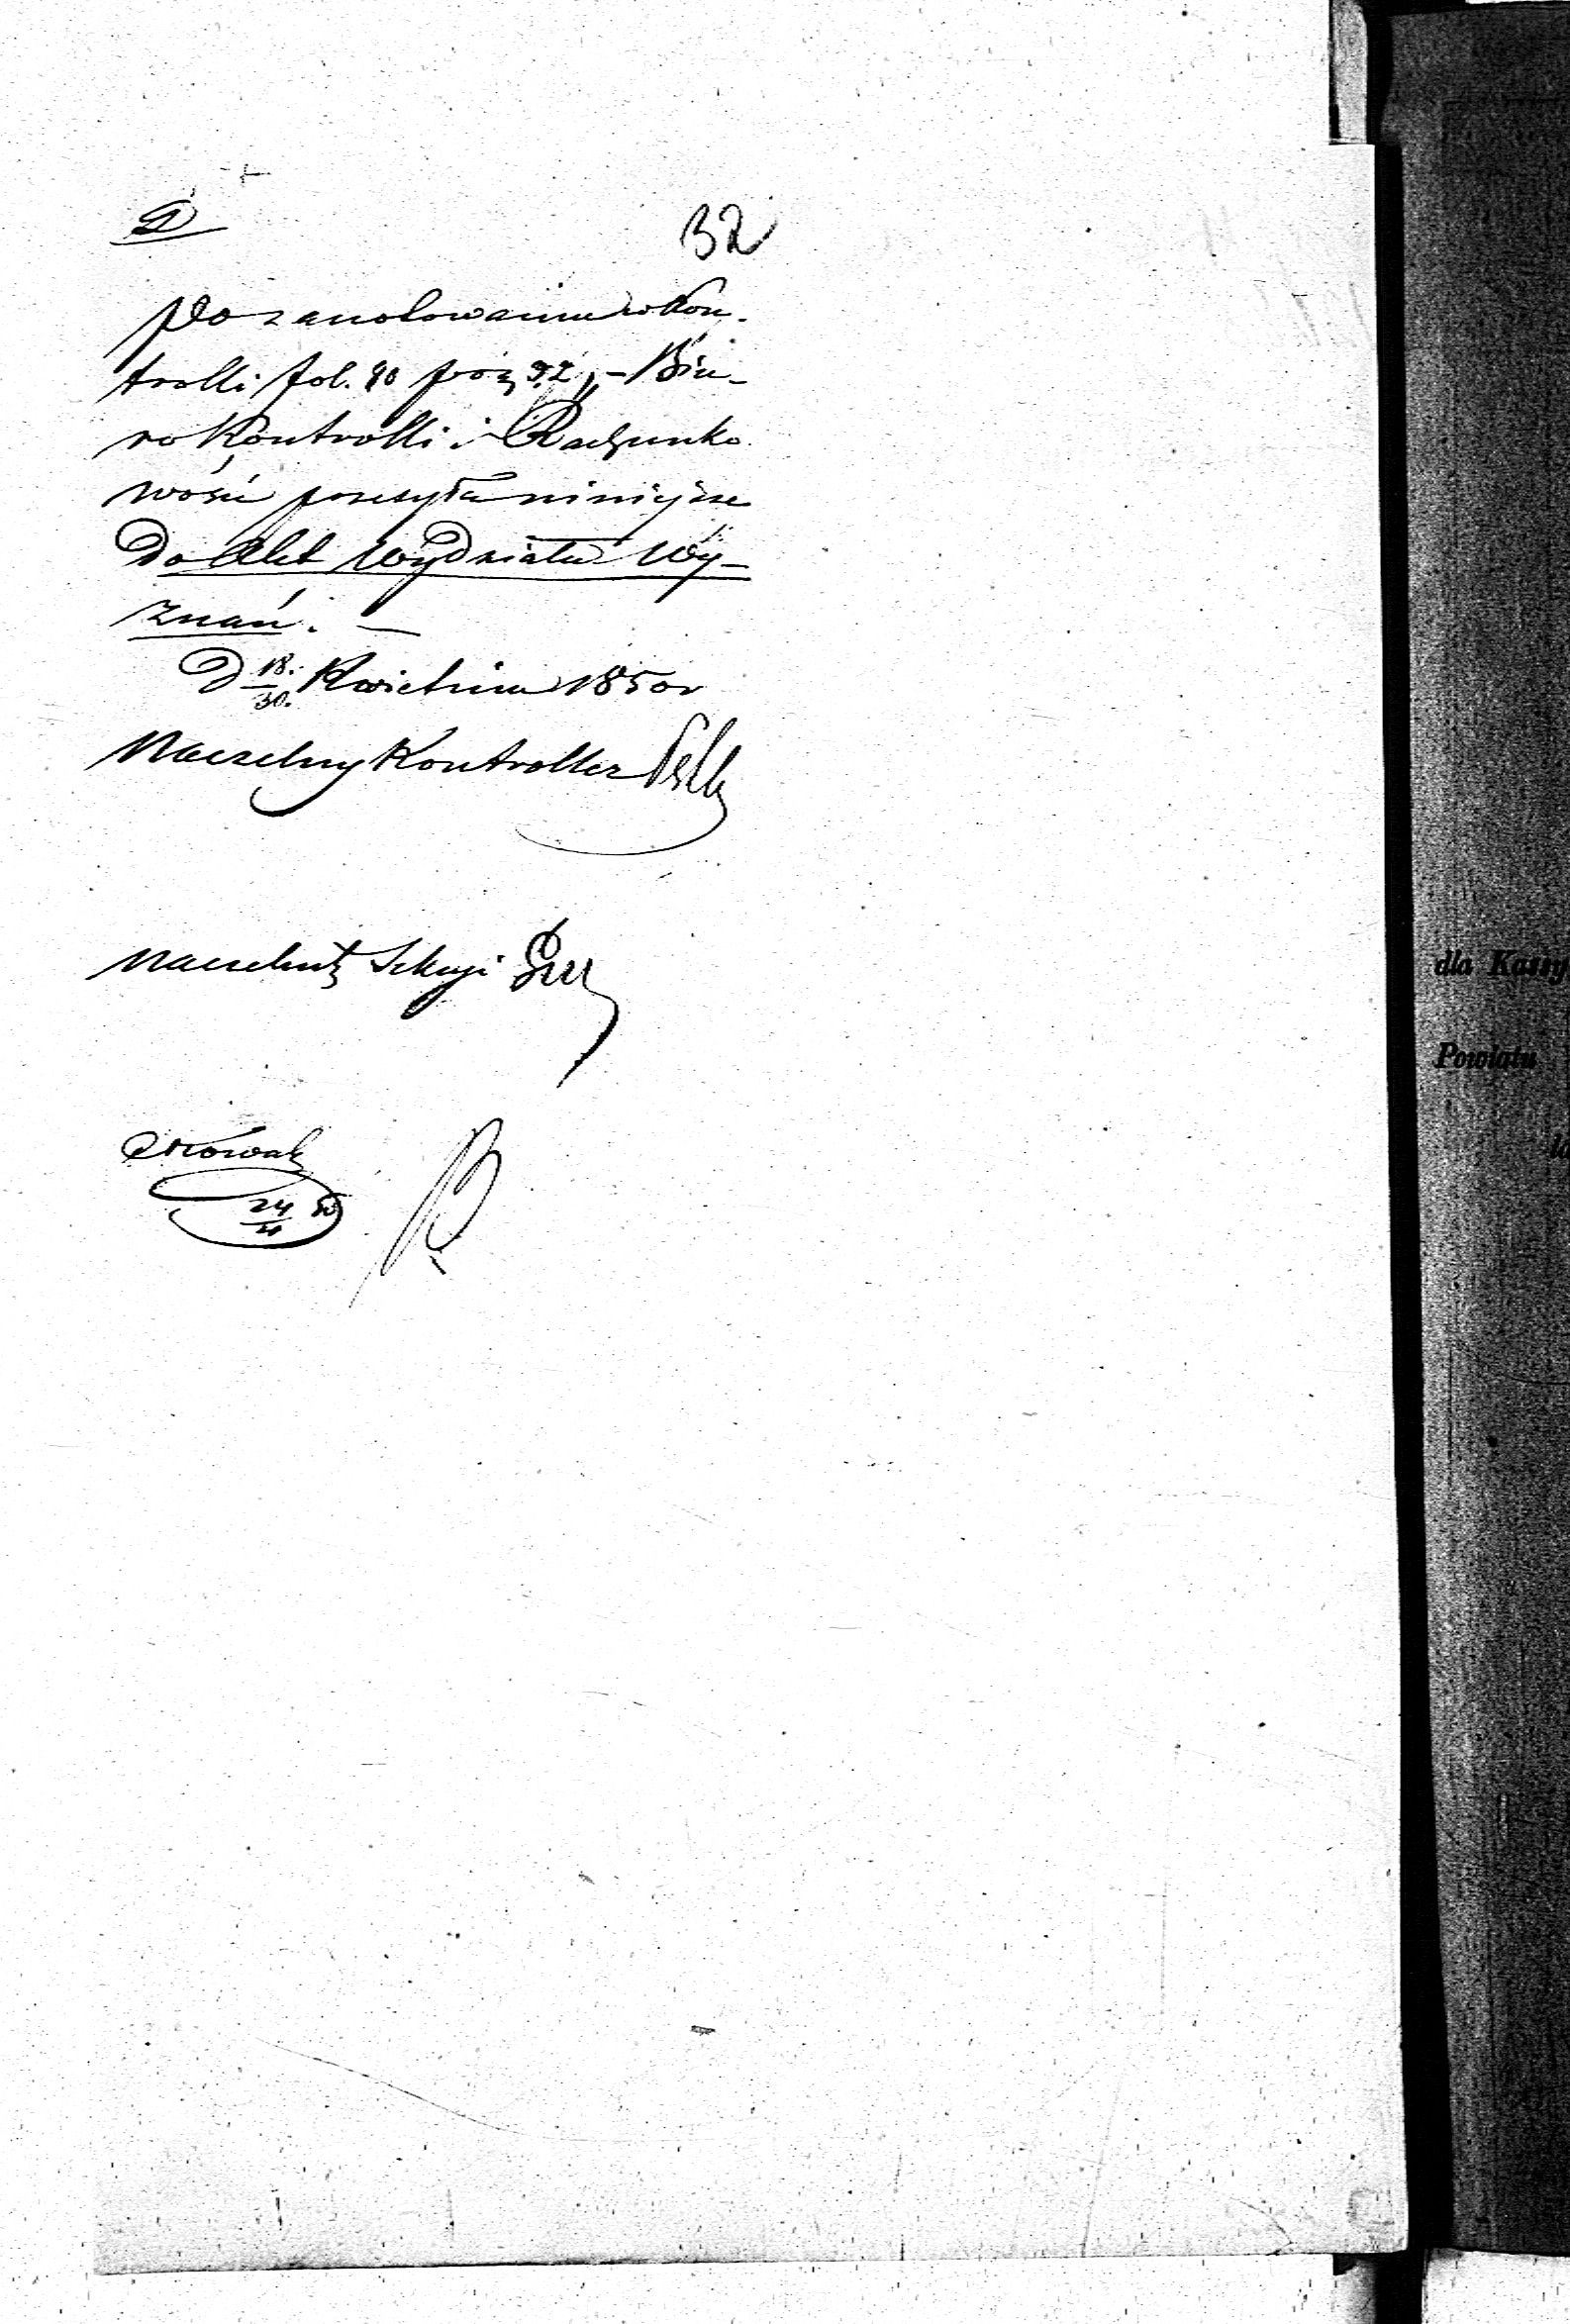 D
32
Po zanotowaniu w Kon-
trolli fol. 90 poz 92 „ – Biu-
ro Kontrolli i Rachunko
wości przesyła niniejsze
Do Akt Wydziału Wy-
znań. —
D 18/30. Kwietnia 1850 r
Naczelny Kontroller
Naczelnik Sekcyi
Nowak
24
dla Kassy
Powiatu